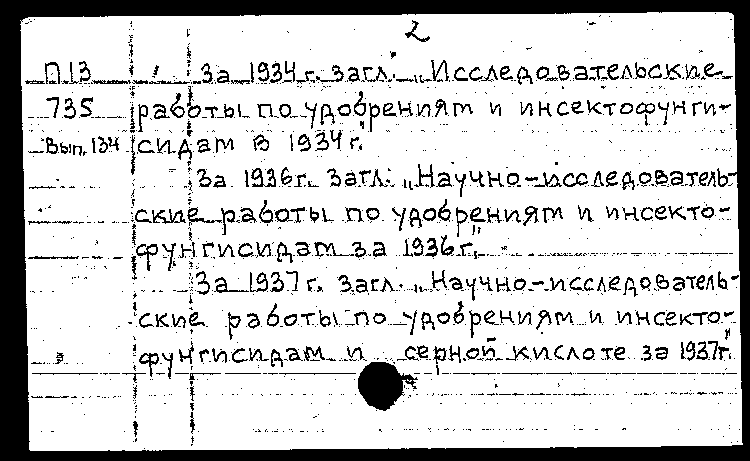 2
П 13 За 1934 г. загл. „Исследовательские
735 работы по удобрениям и инсектофунги-
Вып. 134 сидам в 1934 г."
За 1936 г. загл.: „Научно-исследователь-
ские работы по удобрениям и инсекто-
фунгисидам за 1936 г."
За 1937 г. загл. „Научно-исследователь-
ские работы по удобрениям и инсекто-
фунгисидам и серной кислоте за 1937 г."